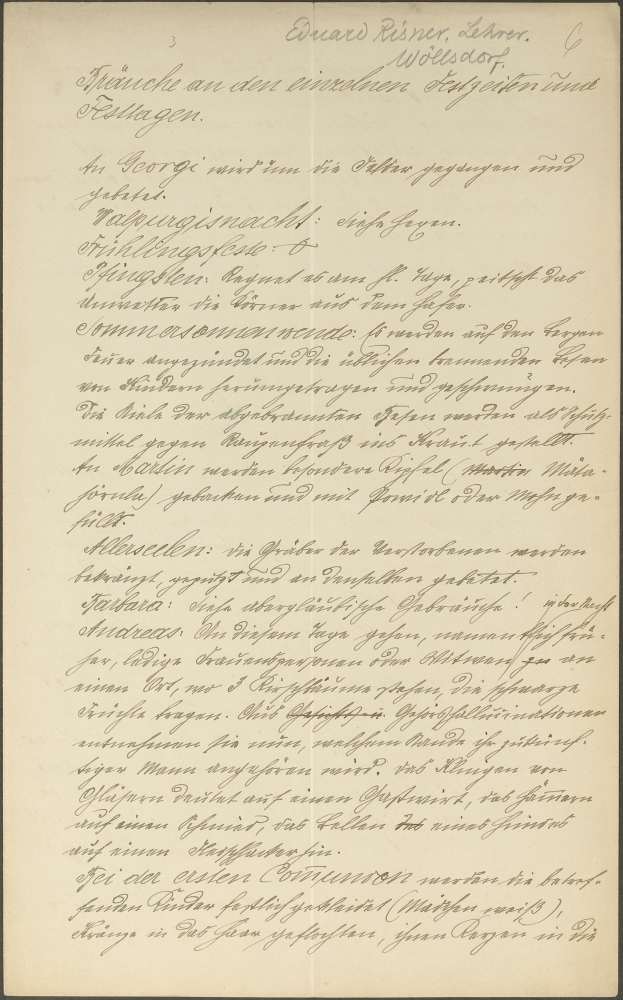 3
Eduard Risner, Lehrer.
6
Wöllsdorf.
Bräuche an den einzelnen Festzeiten und
Festtagen.
An Georgi wird um die Felder gegangen und
gebetet.
Walpurgisnacht: Siehe Hexen.
Frühlingsfeste:
Pfingsten: Regnet es am hl. Tage, peitscht das
Unwetter die Körner aus dem Hafer.
Sommersonnenwende: Es werden auf den Bergen
Feuer angezündet und die üblichen brennenden Besen
von Kindern herumgetragen und geschwungen.
Die Kiele der abgebrannten Besen werden als Schutz-
mittel gegen Raupenfraß ins Kraut gestellt.
An Martin werden besondere Kipfel (Martin
hörnla) gebacken und mit Powidl oder Mohn ge-
füllt.
Allerseelen: Die Gräber der Verstorbenen werden
bekränzt, geputzt und an denselben gebetet.
Barbara: Siehe abergläubische Gebräuche! in der Nacht
Andreas: An diesem Tage gehen, namentlich frü-
her, ledige Frauenspersonen oder Witwen zu an
einen Ort, wo 3 Kirschbäume stehen, die schwarze
Früchte tragen. Aus Gesichts- u. Gehörshallucinationen
entnehmen sie nun, welchem Stande ihr zukünf-
tiger Mann angehören wird. Das Klingen von
Gläsern deutet auf einen Gastwirt, das Hämmern
auf einen Schmied, das Bellen des eines Hundes
auf einen Fleischhacker hin.
Bei der ersten Communion werden die betref-
fenden Kinder festlich gekleidet (Mädchen weiß),
Kränze in das Haar geflochten, ihnen Kerzen in die